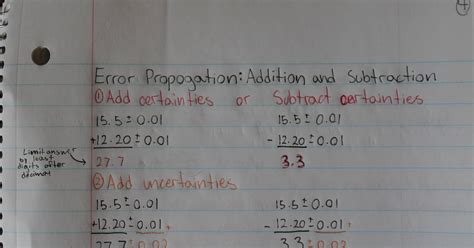 4
Error Propogation: Addition and Subtraction
① Add certainties or Subtract certainties
15.5 ± 0.01 15.5 ± 0.01
+12.20 ± 0.01 - 12.20 ± 0.01
Limit answer by least digits after decimal
27.7 3.3
② Add uncertainties
15.5 ± 0.01 15.5 ± 0.01
+12.20 ± 0.01 + - 12.20 ± 0.01 +
27.7 ± 0.02 3.3 ± 0.02